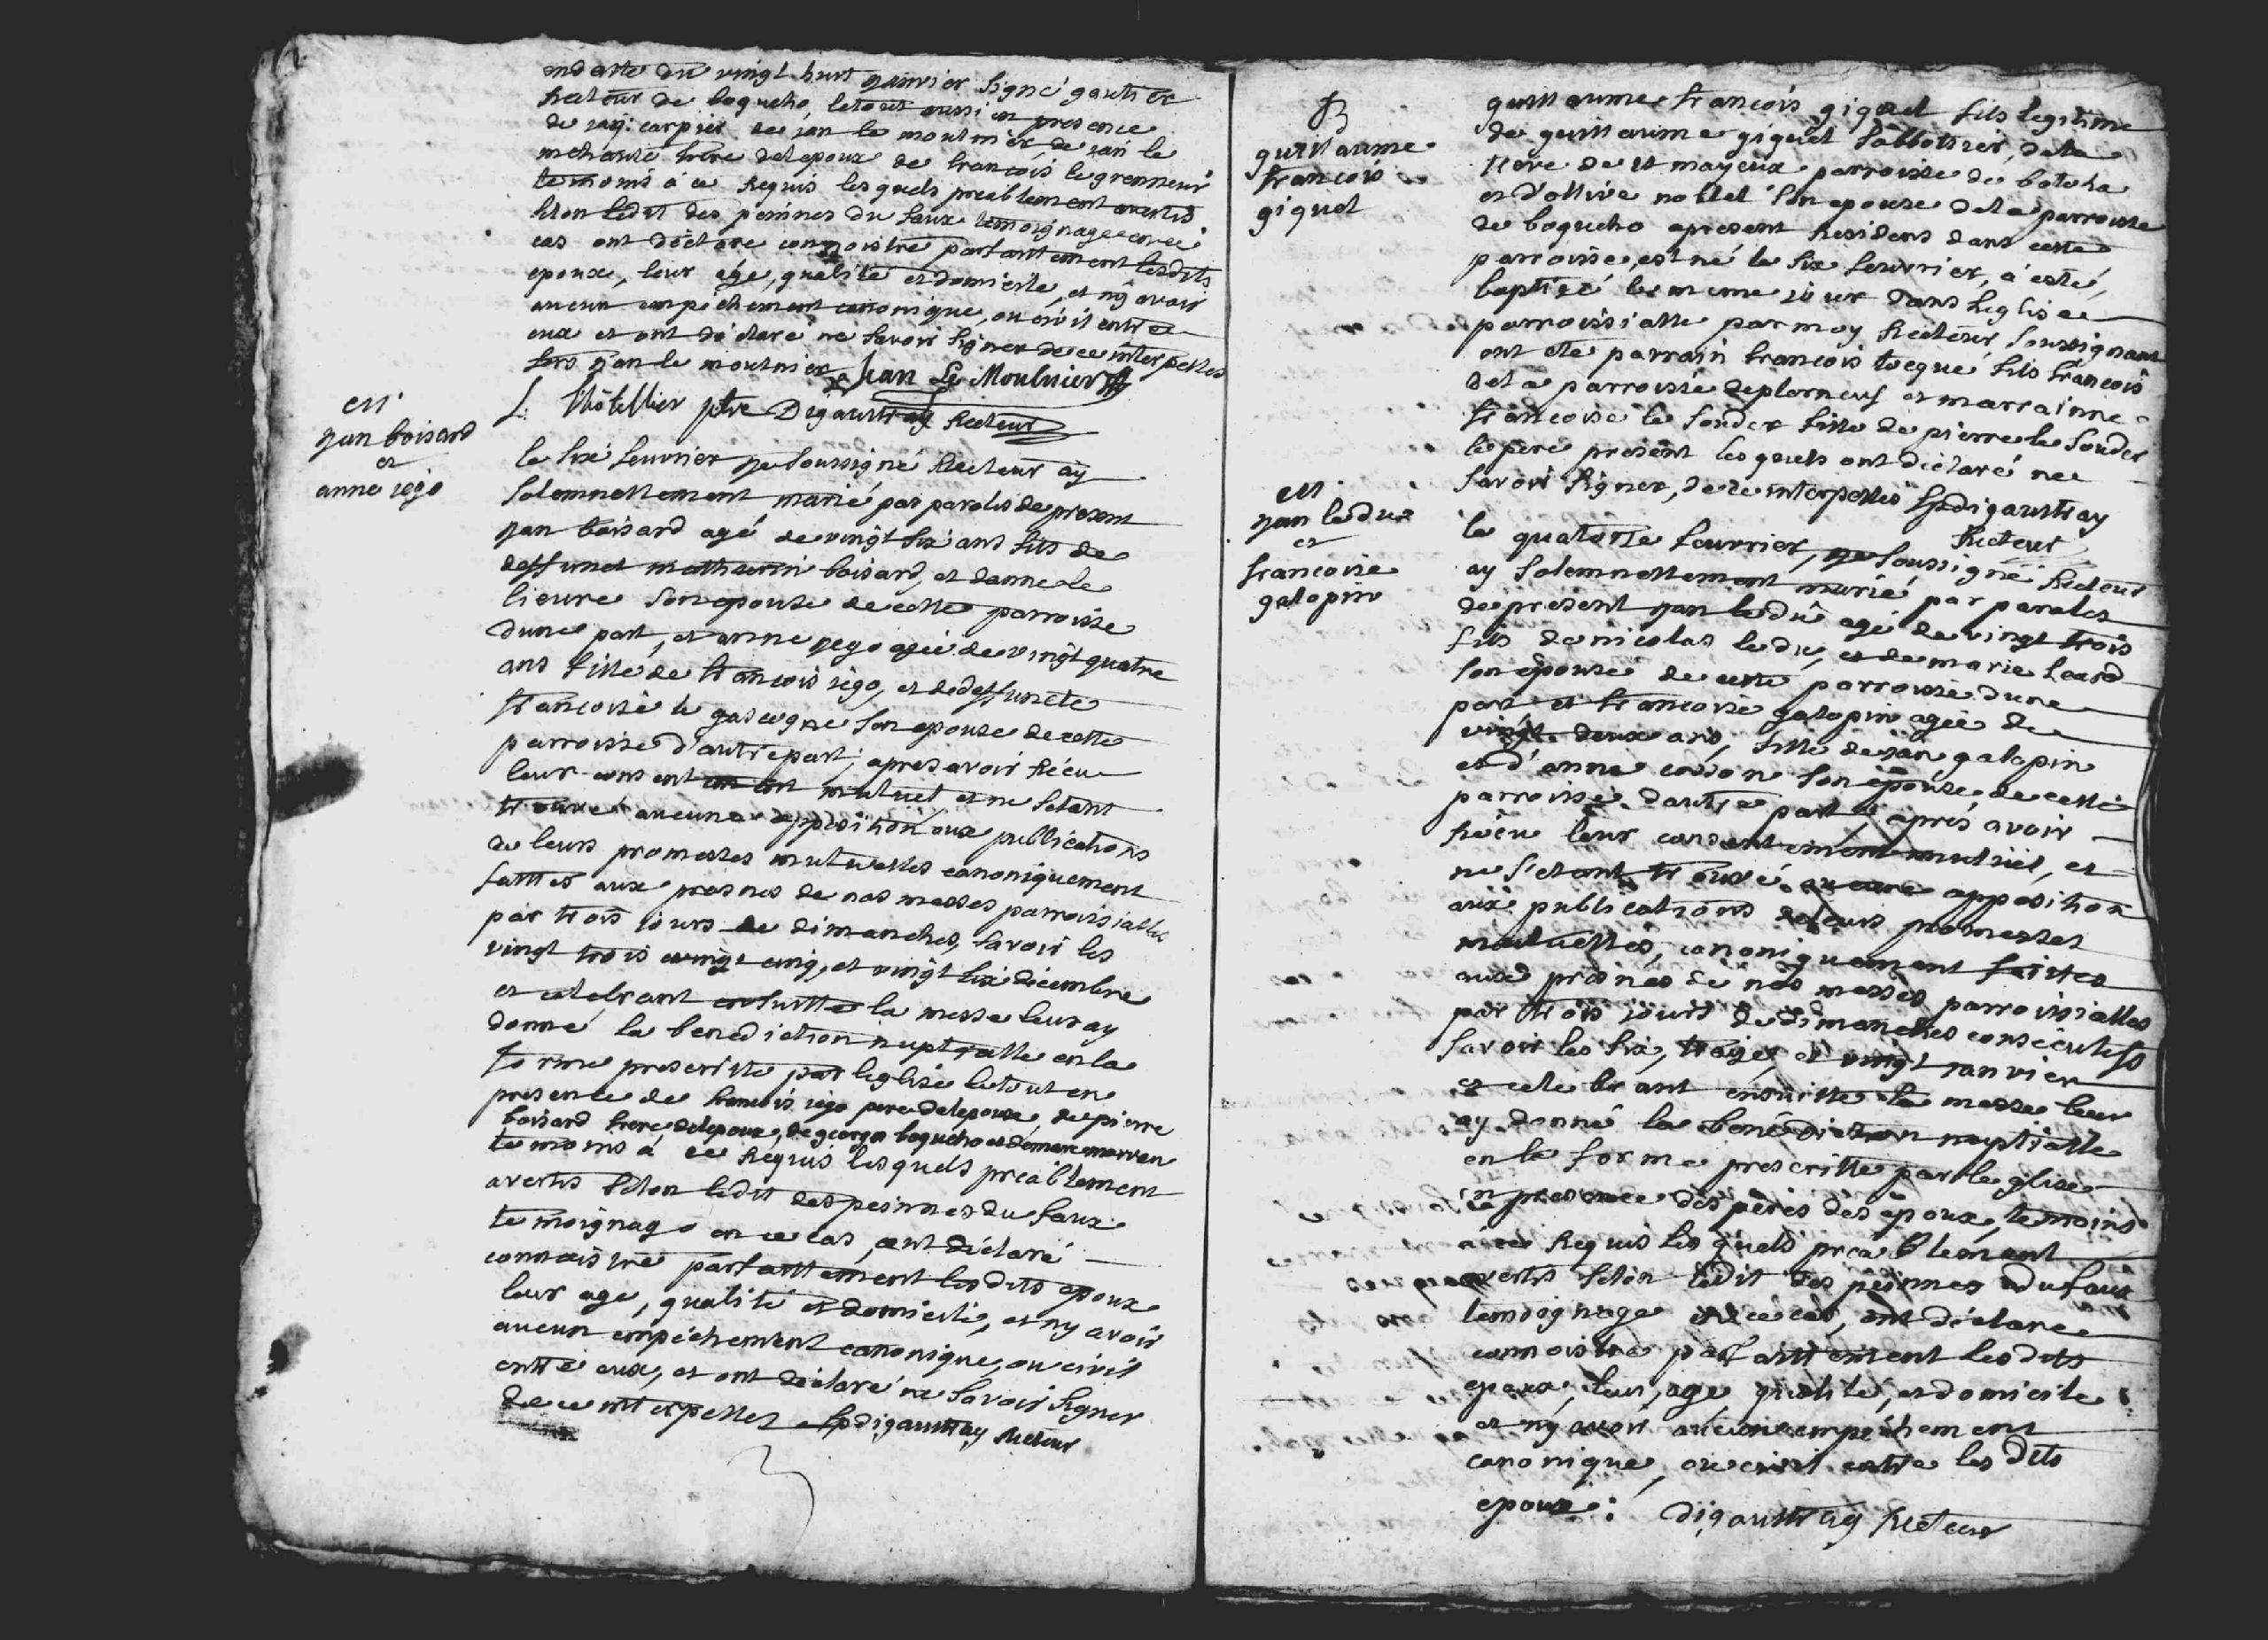 en date du vingt huit janvier signé gautier
Recteur de boqueho, letout aussi en presence
de carpier de jan le moulnier, de jan le
frere delepoux de francois le grenneur
temoins à ce Requis lesquels preablement avertis
selon ledit des peinnes du faux temoignage en ce
cas ont déclaré connoistre parfaittement lesdits
epoux, leur age, qualité et domicile, et n'y avoir
aucun empéchement canonique, ou civil entre
eux et ont déclaré ne savoir signer de ce interpellés
fors jan le moulnier Jean Le Moulnier
L. Thôtellier ptre Digaultray Recteur
en
jan boisard
et
anne jego
le six feuvrier je soussigné Recteur ay
solemnellement marié par paroles de present
jan boisard agé de vingt six ans fils de
deffunct mathurin boisard, et danne le
lieure son epouse de cette parroisse
dune part, et anne jego agée de vingt quatre
ans fille de francois jego, et de deffuncte
francoise le gascogne son epouse de cette
parroisse d'autre part; apres avoir Récu
leur consentement mutuel et ne setant
trouvé aucune opposition aux publications
de leurs promesses mutuelles canoniquement
faittes aux prosnes de nos messes parroissialles
par trois jours de dimanches, savoir les
vingt trois vingt cinq, et vingt six décembre
et celebrant ensuitte la messe leur ay
donné la benediction nuptialle en la
forme prescritte par leglise letout en
presence de francois jego pere delepouse, de pierre
boisard frere delepoux, de george boqueho et de marc morven
temoins à ce Requis lesquels preablement
avertis selon ledit des peinnes du faux
temoignage en ce cas, ont déclaré
connoistre parfaittement lesdits epoux
leur age, qualité et domicile, et ny avoir
aucun empéchement canonique, ou civil
entre eux, et ont déclaré ne savoir signer
de ce interpellez digaultray Recteur
B
guillaume
francois
giquel
guillaume francois giquel fils legitime
de guillaume giquel sabbottier, dela
treve de st mayeux parroisse de botoha
et d'ollive nollet son epouse dela parroisse
de boqueho apresent Residens dans cette
parroisse, est né le six feuvrier, a esté
baptizé le meme jour dans leglise
parroissialle par moy Recteur soussignant
ont été parrain francois tocqué fils francois
dela parroisse deplerneuf et marrainne
francoise le souder fille de pierre le souder
lepere present lesquels ont déclaré ne
savoir signer, de ce interpellés digaultray
Recteur
en
jan ledu
et
francoise
galopin
le quatorze feuvrier, je soussigné Recteur
ay solemnellement marié par paroles
depresent jan le du agé de vingt trois
fils de nicolas le du, et de marie heard
son epouse de cette parroisse dune
part et francoise galopin agée de
vingt deux ans, fille de jan galopin
et d'anne cosson son épouse de cette
parroisse dautre part; après avoir
Récu leur consentement mutuel, et
ne s'etant trouvé aucune opposition
aux publications de leurs promesses
mutuelles, canoniquement faittes
aux prosnes de nos messes parroissialles
par trois jours de dimanches consécutifs
savoir les six, traize, et vingt janvier
et celebrant ensuitte la messe leur
ay donné la bénédiction nuptialle
en la forme prescritte par leglise
en presence des pères des époux, temoins
à ce Requis lesquels preablement
avertis selon ledit des peinnes du faux
temoignage en ce cas, ont déclaré
connoistre parfaittement lesdits
epoux, leur age, qualité, et domicile
et n'y avoir aucun empéchement
canonique, ou civil entre les dits
epoux: digaultray Recteur